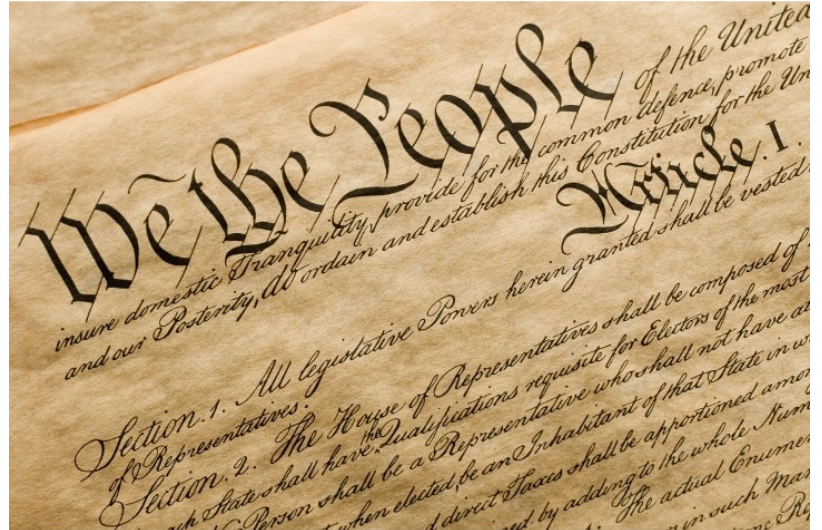 We the People of the United
insure domestic Tranquility, provide for the common defence, promote
and our Posterity, do ordain and establish this Constitution for the Un
Article. I.
Section. 1. All legislative Powers herein granted shall be vested
of Representatives.
Section. 2. The House of Representatives shall be composed of
ach State shall have the Qualifications requisite for Electors of the most
Person shall be a Representative who shall not have at
when elected, be an Inhabitant of that State in w
d direct Taxes shall be apportioned amon
ned, by adding to the whole Num
The actual Enumer
in such Man